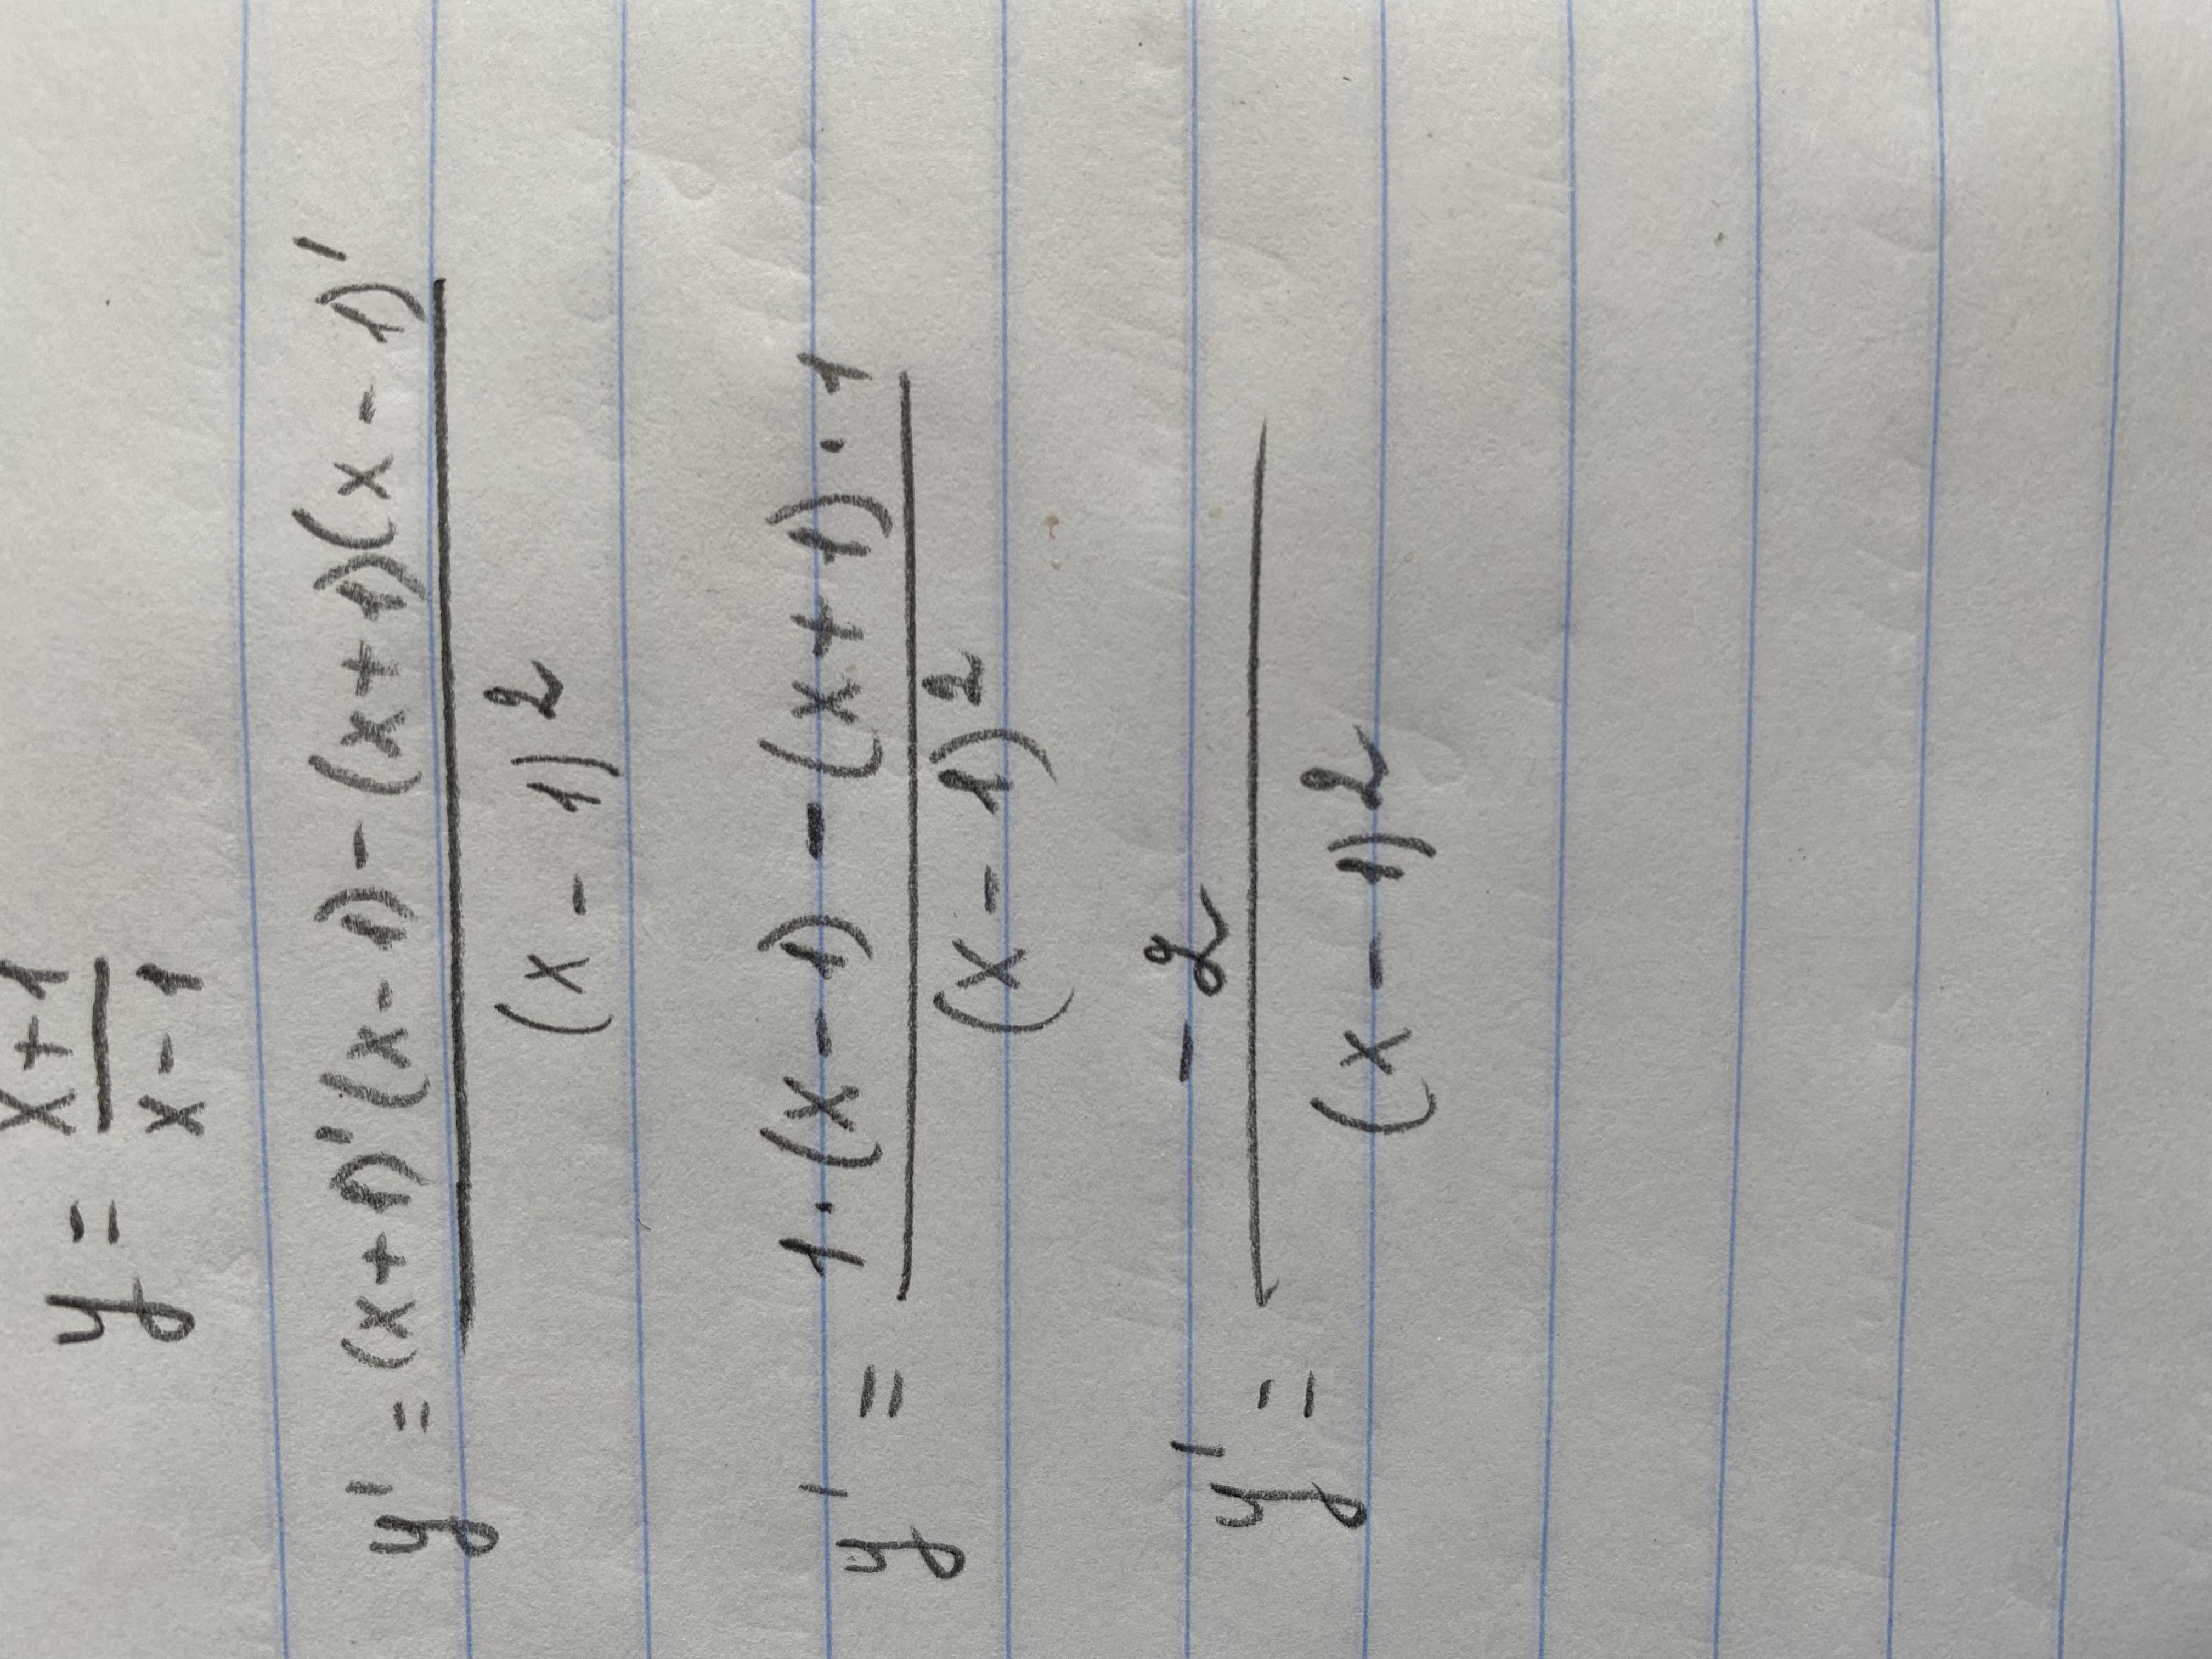 y = (x+1)/(x-1)
y' = ((x+1)'(x-1)-(x+1)(x-1)')/(x-1)²
y' = (1·(x-1)-(x+1)·1)/(x-1)²
y' = -2/(x-1)²